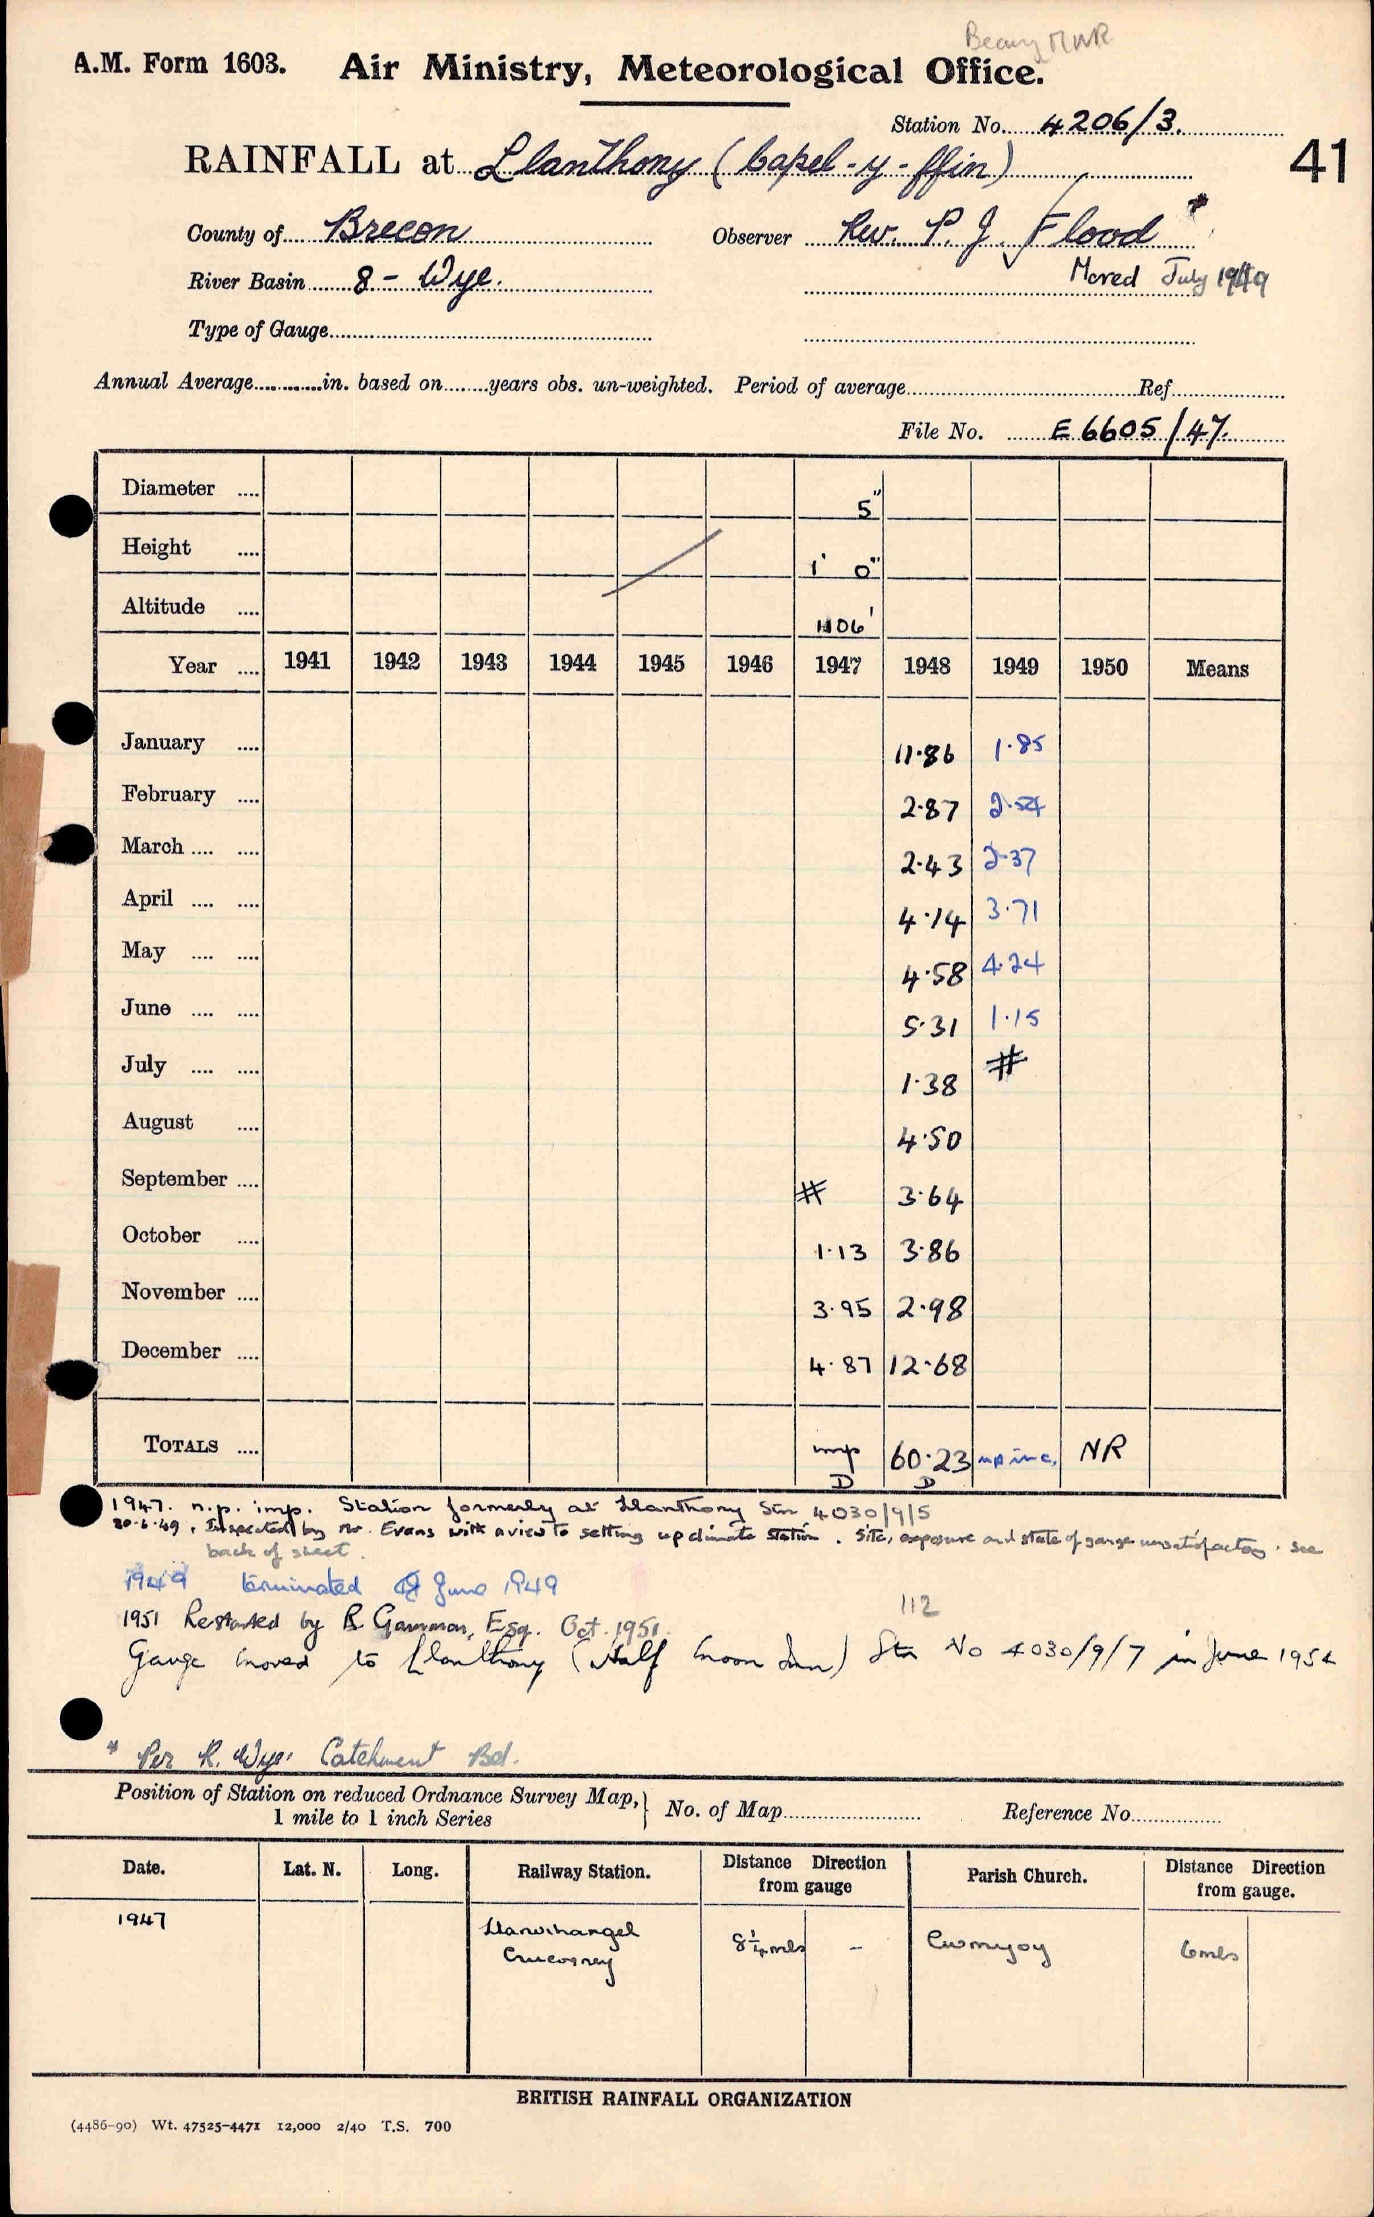 A.M. Form 1603. Air Ministry, Meteorological Office.
Station No. 4206/3.
RAINFALL at Llanthony (Capel-y-ffin)
41
County of Brecon Observer Rev. P. J. Flood *
River Basin 8 - Wye. Moved July 1949
Type of Gauge
Annual Average in. based on years obs. un-weighted. Period of average Ref
File No. E 6605/47.
Diameter 5"
Height 1' 0"
Altitude 1106'
Year 1941 1942 1943 1944 1945 1946 1947 1948 1949 1950 Means
January 11.86 1.85
February 2.87 2.54
March 2.43 2.37
April 4.14 3.71
May 4.58 4.24
June 5.31 1.15
July 1.38 #
August 4.50
September # 3.64
October 1.13 3.86
November 3.95 2.98
December 4.87 12.68
TOTALS imp 60.23 inc. NR
D D
1947. n.p. imp. Station formerly at Llanthony Stn 4030/9/5
20-6-49. Inspected by Mr. Evans with a view to setting up climate station. Site, exposure and state of gauge unsatisfactory. see
back of sheet.
1949 terminated June 1949
112
1951 Restarted by R Gammon, Esq. Oct. 1951.
Gauge moved to Llanthony (Half Moon Inn) Stn No 4030/9/7 in June 1954
* Per R. Wye. Catchment Bd.
Position of Station on reduced Ordnance Survey Map, } No. of Map Reference No.
1 mile to 1 inch Series
Date. Lat. N. Long. Railway Station. Distance Direction from gauge Parish Church. Distance Direction from gauge.
1947 Llanvihangel 8¼ mls - Cwmyoy 6 mls
Crucorney
BRITISH RAINFALL ORGANIZATION
(4486-90) Wt. 47525-4471 12,000 2/40 T.S. 700